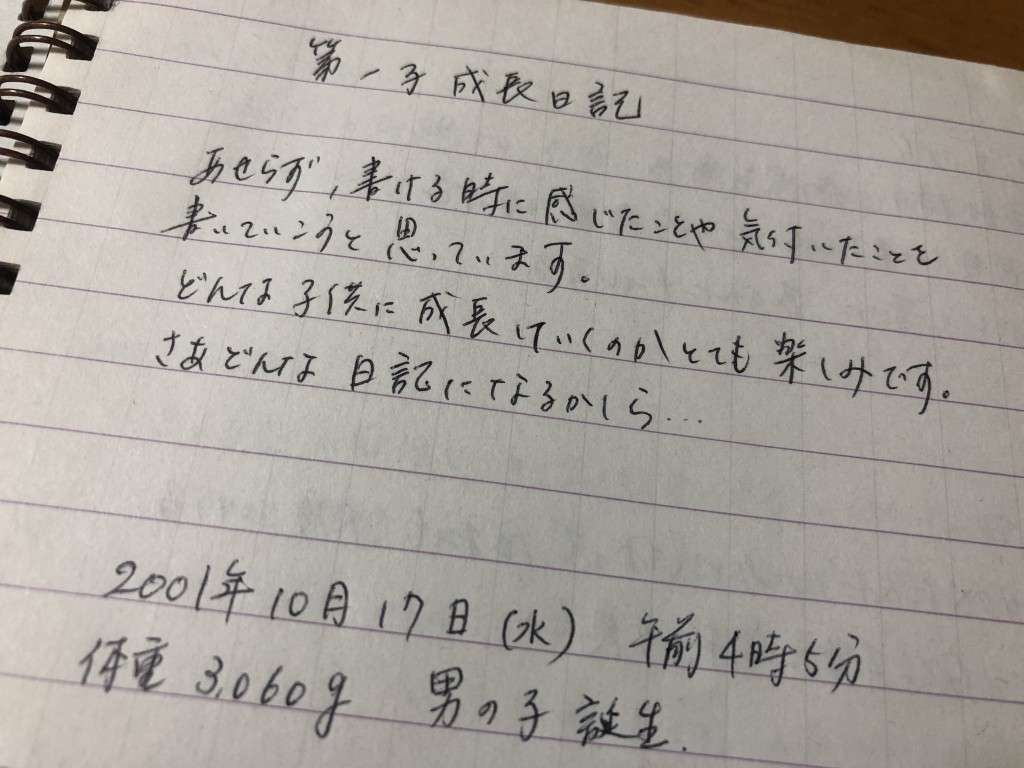 第一子成長日記
あせらず、書ける時に感じたことや気付いたことを
書いていこうと思っています。
どんな子供に成長していくのかとても楽しみです。
さあどんな日記になるかしら…
2001年10月17日(水) 午前4時5分
体重3,060g 男の子誕生.